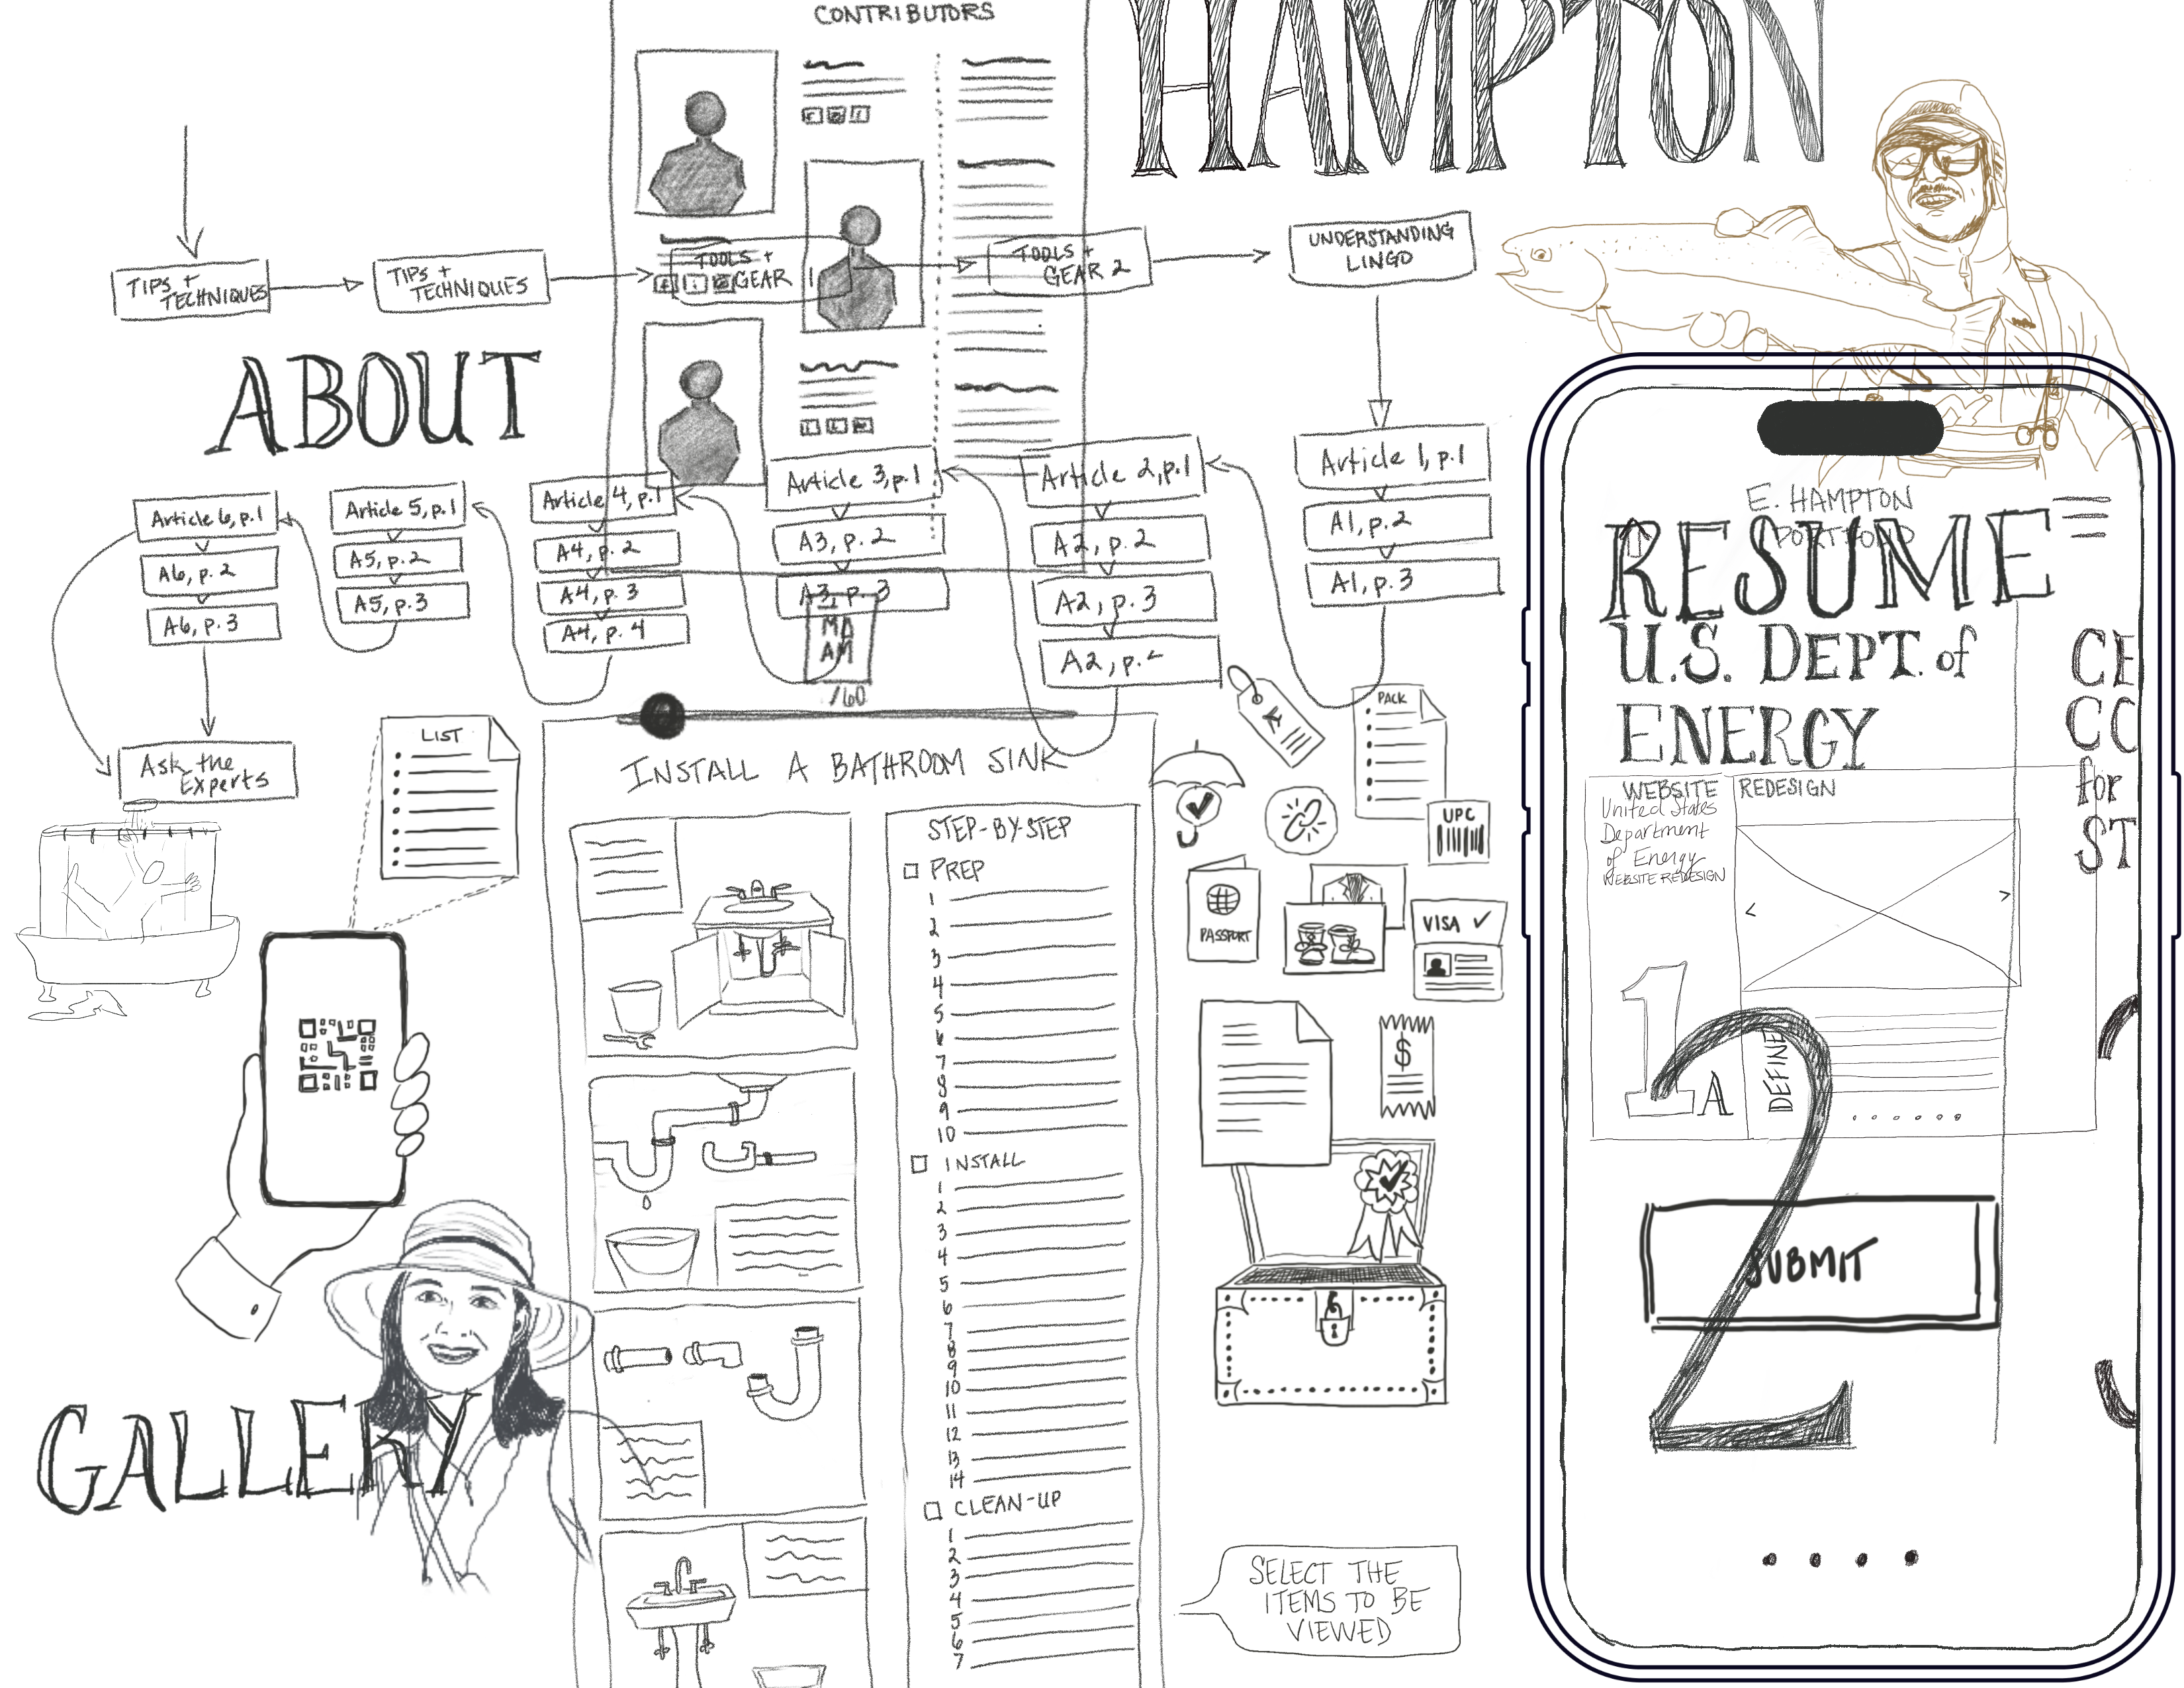 CONTRIBUTORS
HAMPTON
TIPS +
TECHNIQUES
TIPS +
TECHNIQUES
TOOLS +
GEAR 1
TOOLS +
GEAR 2
UNDERSTANDING
LINGO
ABOUT
Article 1, p.1
A1, p.2
A1, p.3
Article 2, p.1
A2, p.2
A2, p.3
A2, p.
Article 3, p.1
A3, p.2
A3, p.3
Article 4, p.1
A4, p.2
A4, p.3
A4, p.4
Article 5, p.1
A5, p.2
A5, p.3
Article 6, p.1
A6, p.2
A6, p.3
Ask the
Experts
MD
AM
/60
LIST
INSTALL A BATHROOM SINK
STEP-BY-STEP
PREP
1
2
3
4
5
6
7
8
9
10
INSTALL
1
2
3
4
5
6
7
8
9
10
11
12
13
14
CLEAN-UP
1
2
3
4
5
6
7
PACK
UPC
PASSPORT
VISA
$
GALLERY
SELECT THE
ITEMS TO BE
VIEWED
E. HAMPTON
PORTFOLIO
RESUME
U.S. DEPT. of
ENERGY
CE
CO
for
ST
WEBSITE REDESIGN
United States
Department
of Energy
WEBSITE REDESIGN
1A
DEFINE
2
SUBMIT